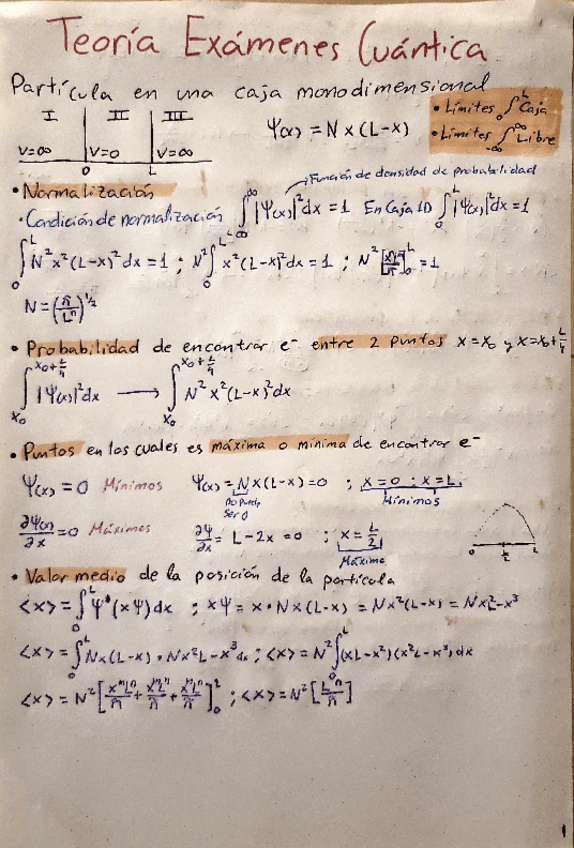 Teoría Exámenes Cuántica
Partícula en una caja monodimensional
I II III
V=∞ V=0 V=∞
0 L
Ψ(x) = N x (L-x)
• Límites ∫₀ᴸ Caja
• Límites ∫₋∞^∞ Libre
• Normalización
Función de densidad de probabilidad
• Condición de normalización ∫_∞^∞ |Ψ(x)|² dx = 1 En Caja 1D ∫₀ᴸ |Ψ(x)|² dx = 1
∫₀ᴸ N² x² (L-x)² dx = 1 ; N² ∫₀ᴸ x² (L-x)² dx = 1 ; N² [xⁿ/Lⁿ]₀ᴸ = 1
N = (n/Lⁿ)^½
• Probabilidad de encontrar e⁻ entre 2 puntos x = x₀ y x = x₀ + L/4
∫_{x₀}^{x₀+L/4} |Ψ(x)|² dx → ∫_{x₀}^{x₀+L/4} N² x² (L-x)² dx
• Puntos en los cuales es máxima o mínima de encontrar e⁻
Ψ(x) = 0 Mínimos Ψ(x) = N x (L-x) = 0 ; x = 0 ; x = L
No puede
Ser 0
Mínimos
∂Ψ(x)/∂x = 0 Máximos ∂Ψ/∂x = L - 2x = 0 ; x = L/2
Máximo
0 L/2 L
• Valor medio de la posición de la partícula
<x> = ∫₀ᴸ Ψ*(xΨ) dx ; xΨ = x · N x (L-x) = N x² (L-x) = N x² L - x³
<x> = ∫₀ᴸ N x (L-x) · N x² L - x³ dx ; <x> = N² ∫₀ᴸ (xL - x²)(x² L - x³) dx
<x> = N² [xⁿLⁿ/n + xⁿLⁿ/n + xⁿLⁿ/n]₀ᴸ ; <x> = N² [Lⁿ/n]
1